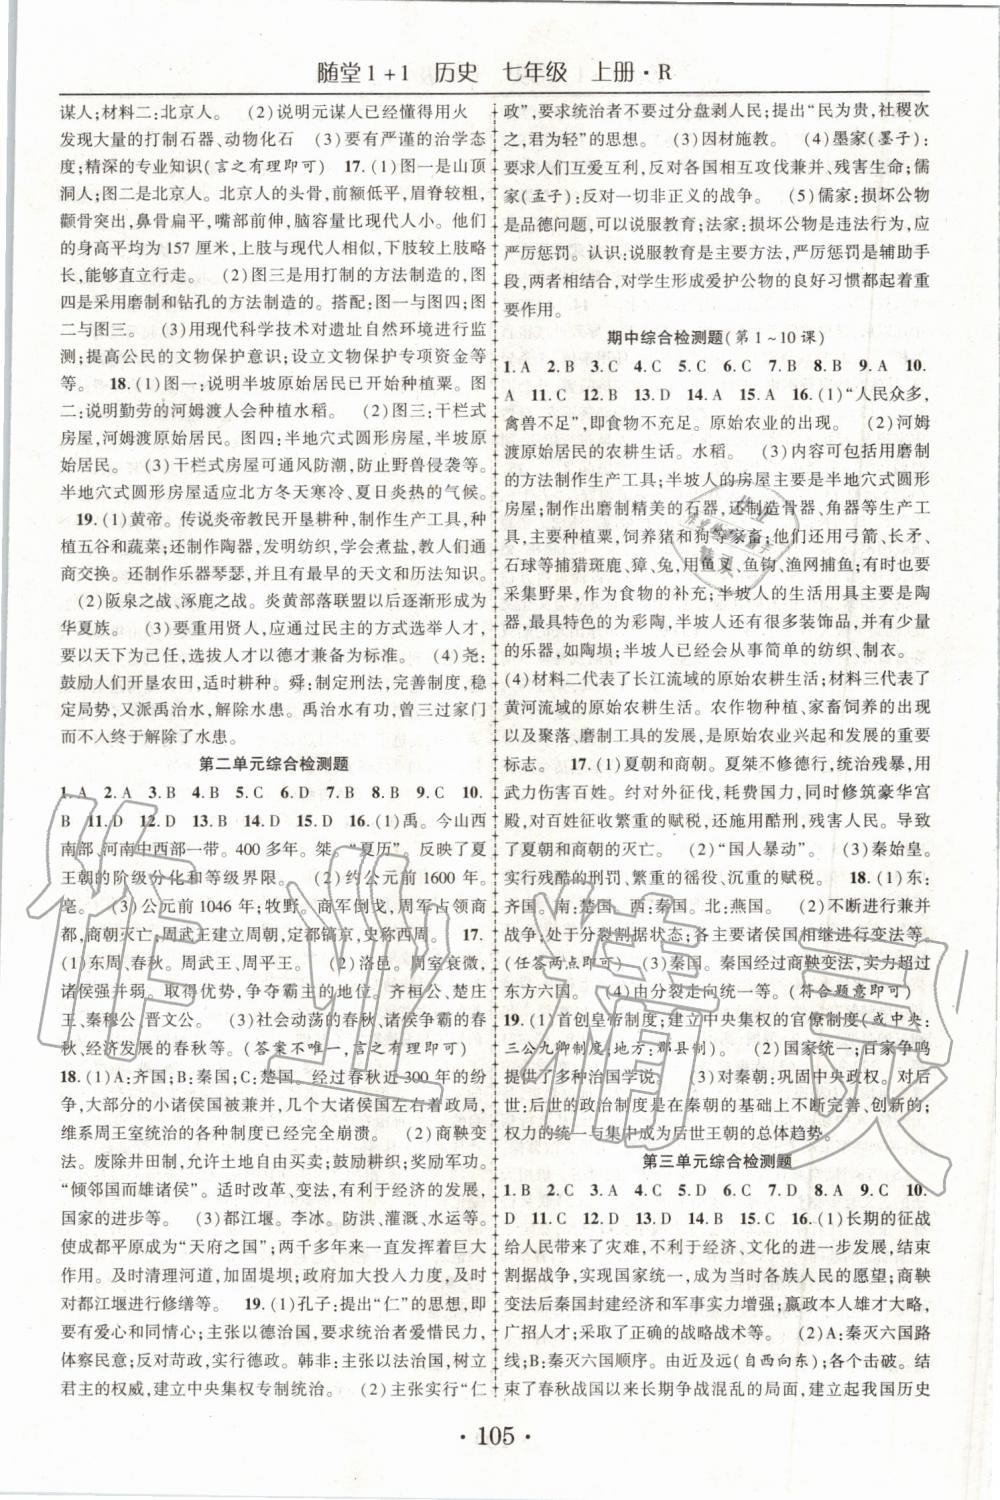 随堂1+1 历史 七年级 上册·R
谋人;材料二:北京人。 (2)说明元谋人已经懂得用火
发现大量的打制石器、动物化石 (3)要有严谨的治学态
度;精深的专业知识(言之有理即可) 17.(1)图一是山顶
洞人;图二是北京人。北京人的头骨,前额低平,眉脊较粗,
颧骨突出,鼻骨扁平,嘴部前伸,脑容量比现代人小。他们
的身高平均为157厘米,上肢与现代人相似,下肢较上肢略
长,能够直立行走。 (2)图三是用打制的方法制造的,图
四是采用磨制和钻孔的方法制造的。搭配:图一与图四;图
二与图三。 (3)用现代科学技术对遗址自然环境进行监
测;提高公民的文物保护意识;设立文物保护专项资金等
等。 18.(1)图一;说明半坡原始居民已开始种植粟。图
二:说明勤劳的河姆渡人会种植水稻。 (2)图三:干栏式
房屋,河姆渡原始居民。图四:半地穴式圆形房屋,半坡原
始居民。 (3)干栏式房屋可通风防潮,防止野兽侵袭等。
半地穴式圆形房屋适应北方冬天寒冷、夏日炎热的气候。
19.(1)黄帝。传说炎帝教民开垦耕种,制作生产工具,种
植五谷和蔬菜;还制作陶器,发明纺织,学会煮盐,教人们通
商交换。还制作乐器琴瑟,并且有最早的天文和历法知识。
(2)阪泉之战、涿鹿之战。炎黄部落联盟以后逐渐形成为
华夏族。 (3)要重用贤人,应通过民主的方式选举人才,
要以天下为己任,选拔人才以德才兼备为标准。 (4)尧:
鼓励人们开垦农田,适时耕种。舜:制定刑法,完善制度,稳
定局势,又派禹治水,解除水患。禹治水时,曾三过家门
而不入终于解除了水患。
第二单元综合检测题
1.A 2.A 3.B 4.B 5.C 6.D 7.B 8.B 9.C 10.
B 11.D 12.D 13.B 14.D 15.D 16.(1)禹。今山西
南部、河南中西部一带。400多年。桀。“夏历”。反映了夏
王朝的阶级分化和等级界限。 (2)约公元前1600年。
亳。 (3)公元前1046年;牧野。商军倒戈,周军占领商
都,商朝灭亡;周武王建立周朝,定都镐京,史称西周。 17.
(1)东周、春秋。周武王、周平王。 (2)洛邑。周室衰微,
诸侯强并弱。取得优势,争夺霸主的地位。齐桓公、楚庄
王、秦穆公、晋文公。 (3)社会动荡的春秋、诸侯争霸的春
秋、经济发展的春秋等。(答案不唯一,言之有理即可)
18.(1)A:齐国;B:秦国;C:楚国。经过春秋近300年的纷
争,大部分的小诸侯国被兼并,几个大诸侯国左右着政局,
维系周王室统治的各种制度已经完全崩溃。 (2)商鞅变
法。废除井田制,允许土地自由买卖;鼓励耕织;奖励军功。
“倾邻国而雄诸侯”。适时改革、变法,有利于经济的发展,
国家的进步等。 (3)都江堰。李冰。防洪、灌溉、水运等。
使成都平原成为“天府之国”;两千多年来一直发挥着巨大
作用。及时清理河道,加固堤坝;政府加大投入力度,及时
对都江堰进行修缮等。 19.(1)孔子:提出“仁”的思想,即
要有爱心和同情心;主张以德治国,要求统治者爱惜民力,
体察民意;反对苛政,实行德政。韩非:主张以法治国,树立
君主的权威,建立中央集权专制统治。 (2)主张实行“仁
政”,要求统治者不要过分盘剥人民;提出“民为贵,社稷次
之,君为轻”的思想。 (3)因材施教。 (4)墨家(墨子):
要求人们互爱互利,反对各国相互攻伐兼并、残害生命;儒
家(孟子):反对一切非正义的战争。 (5)儒家:损坏公物
是品德问题,可以说服教育;法家:损坏公物是违法行为,应
严厉惩罚。认识:说服教育是主要方法,严厉惩罚是辅助手
段,两者相结合,对学生形成爱护公物的良好习惯都具有重
要作用。
期中综合检测题(第1~10课)
1.A 2.B 3.C 4.C 5.C 6.C 7.B 8.B 9.A 10.
A 11.C 12.B 13.D 14.A 15.A 16.(1)“人民众多,
禽兽不足”,即食物不充足。原始农业的出现。 (2)河姆
渡原始居民的农耕生活。水稻。 (3)内容可包括用磨制
的方法制作生产工具;半坡人的房屋主要是半地穴式圆形
房屋;制作出磨制精美的石器,还制造骨器、角器等生产工
具,主要种植粟,同时饲养猪和狗等家畜;他们还用弓箭、长矛、
石球等捕猎斑鹿、獐、兔,用鱼叉、鱼钩、渔网捕鱼;有时也要
采集野果,作为食物的补充;半坡人的生活用具主要是陶
器,最具特色的为彩陶,半坡人还有很多装饰品,并有少量
的乐器,如陶埙;半坡人已经会从事简单的纺织、制衣。
(4)材料二代表了长江流域的原始农耕生活;材料三代表了
黄河流域的原始农耕生活。农作物种植、家畜饲养的出现
以及聚落、磨制工具的发展,是原始农业兴起和发展的重要
标志。 17.(1)夏朝和商朝。夏桀不修德行,统治残暴,用
武力伤害百姓。纣对外征伐,耗费国力,同时修筑豪华宫
殿,对百姓征收繁重的赋税,还施用酷刑,残害人民。导致
了夏朝和商朝的灭亡。 (2)“国人暴动”。 (3)秦始皇。
实行残酷的刑罚、繁重的徭役、沉重的赋税。 18.(1)东:
齐国。南:楚国。西:秦国。北:燕国。 (2)不断进行兼并
战争;处于分裂割据状态;各诸侯国相继进行变法等。
(任答两点即可) (3)秦国。秦国经过商鞅变法,实力超过
东方六国。 (4)由分裂走向统一等。(符合题意即可)
19.(1)首创皇帝制度;建立中央集权的官僚制度(或中央:
三公九卿制度;地方:郡县制)。 (2)国家统一;百家争鸣
提供了多种治国学说。 (3)对秦朝:巩固中央政权。对后
世:后世的政治制度在秦朝的基础上不断完善、创新的;
权力的统一与集中成为后世王朝的总体趋势。
第三单元综合检测题
1.B 2.C 3.A 4.C 5.D 6.D 7.D 8.A 9.C 10.
D 11.C 12.B 13.A 14.D 15.C 16.(1)长期的征战
给人民带来了灾难,不利于经济、文化的进一步发展,结束
割据战争,实现国家统一,成为当时各族人民的愿望;商鞅
变法后秦国封建经济和军事实力增强;嬴政本人雄才大略,
广招人才;采取了正确的战略战术等。 (2)A:秦灭六国路
线;B:秦灭六国顺序。由近及远(自西向东);各个击破。结
束了春秋战国以来长期争战混乱的局面,建立起我国历史
·105·
作业精灵